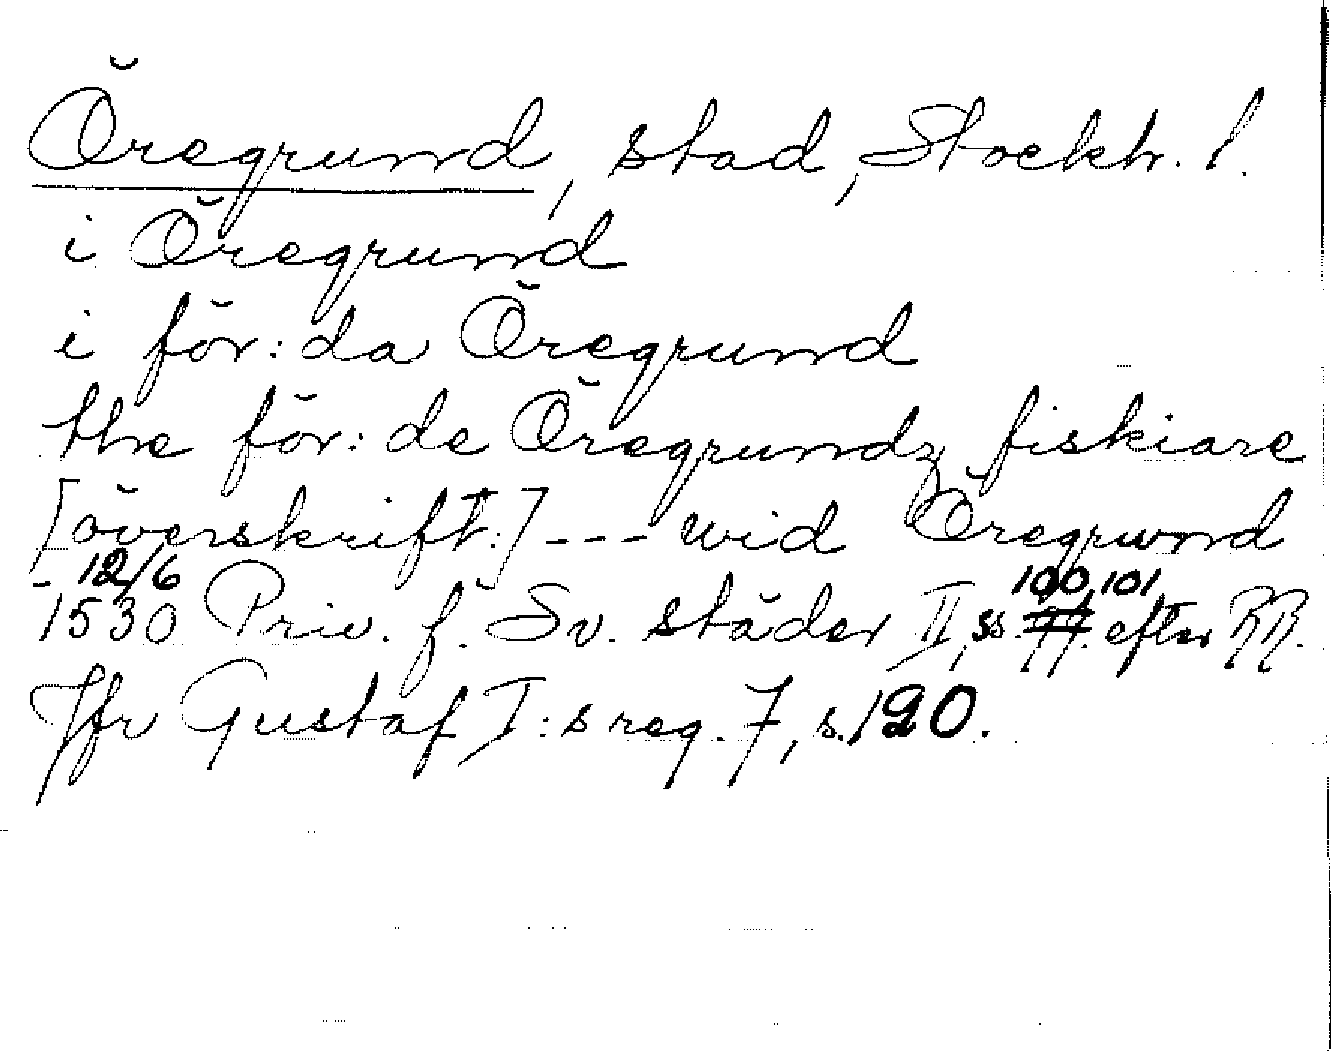 Öregrund, stad, Stockh. l.
i Öregrund
i för: da Öregrund
the för: de Öregrundz fiskiare
[överskrift:] --- wid Öregrund
- 12/6 100, 101
1530 Priv. f. Sv. städer II, ss. efter RR.
Jfr Gustaf I: s reg. 7, s. 120.